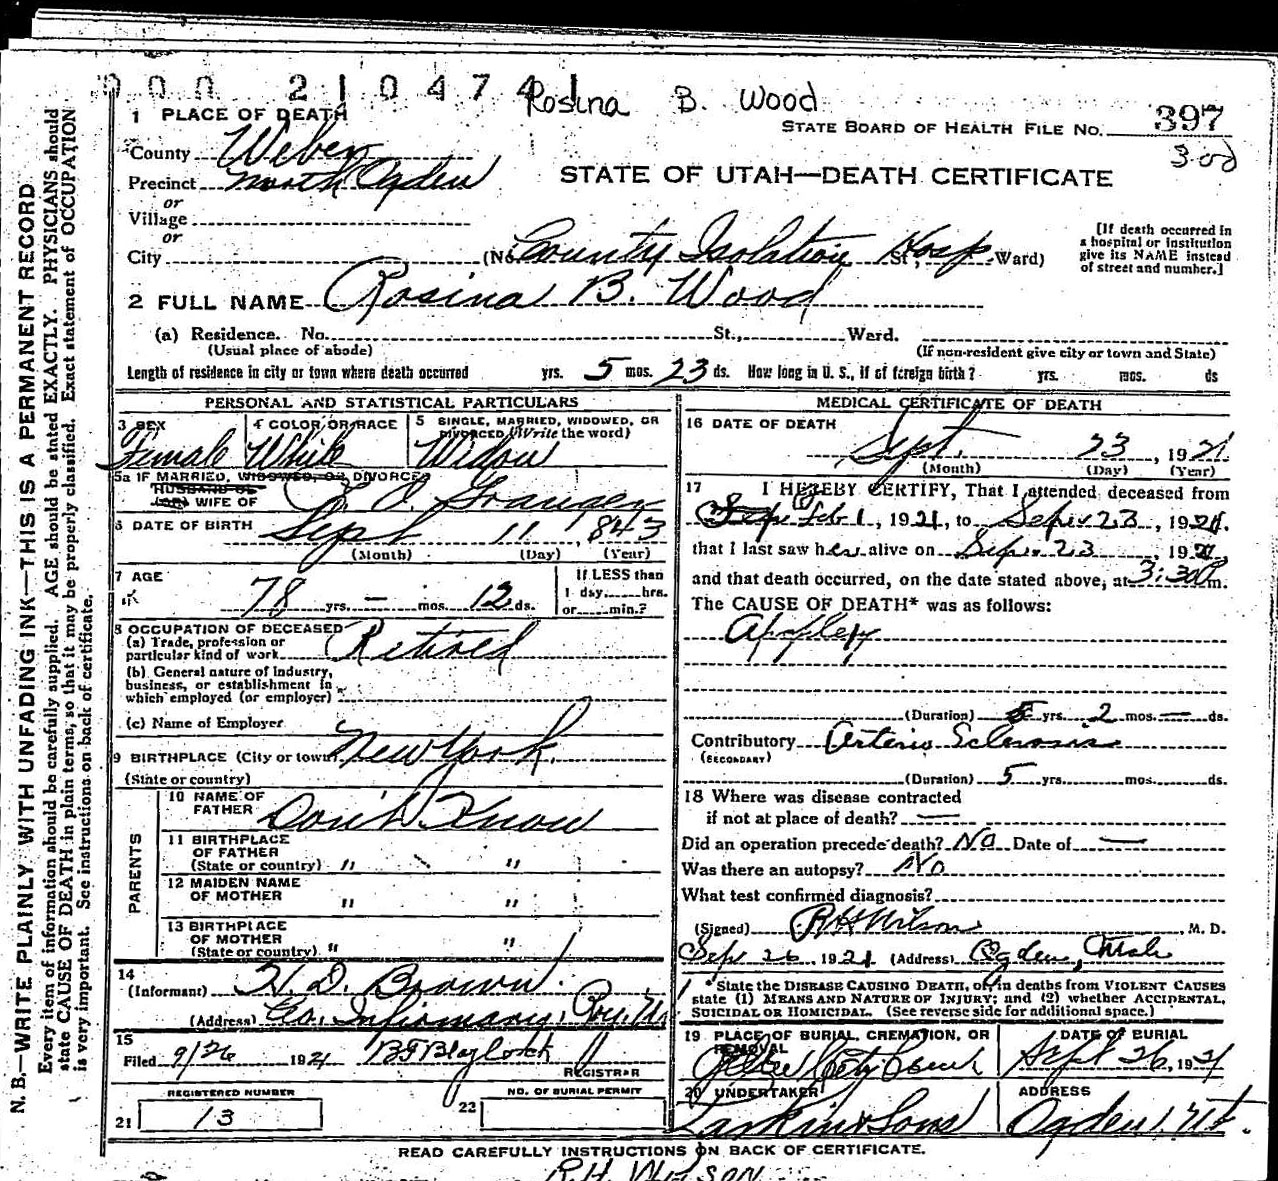 000 210474
Rosina B. Wood
1 PLACE OF DEATH
STATE BOARD OF HEALTH FILE NO. 397
County Weber
Precinct North Ogden
STATE OF UTAH—DEATH CERTIFICATE
or
Village
or
City (No. County Isolation Hosp St., Ward)
[If death occurred in
a hospital or institution
give its NAME instead
of street and number.]
2 FULL NAME Rosina B. Wood
(a) Residence. No. St., Ward.
(Usual place of abode) (If non-resident give city or town and State)
Length of residence in city or town where death occurred yrs. 5 mos. 23 ds. How long in U. S., if of foreign birth? yrs. mos. ds
PERSONAL AND STATISTICAL PARTICULARS
3 SEX 4 COLOR OR RACE 5 SINGLE, MARRIED, WIDOWED, OR
DIVORCED (Write the word)
Female White Widow
5a IF MARRIED, WIDOWED, OR DIVORCED
HUSBAND OF
(or) WIFE OF Granger
6 DATE OF BIRTH Sept 11, 1843
(Month) (Day) (Year)
7 AGE If LESS than
78 yrs. — mos. 12 ds. 1 day, hrs.
or min.?
8 OCCUPATION OF DECEASED
(a) Trade, profession or
particular kind of work Retired
(b) General nature of industry,
business, or establishment in
which employed (or employer)
(c) Name of Employer
9 BIRTHPLACE (City or town) New York
(State or country)
PARENTS
10 NAME OF
FATHER Don't Know
11 BIRTHPLACE
OF FATHER
(State or country) " "
12 MAIDEN NAME
OF MOTHER " "
13 BIRTHPLACE
OF MOTHER
(State or country) " "
14
(Informant) H. D. Brown.
(Address) Co. Infirmary, Roy, Ut
15
Filed 9/26 1921 Blaylock
REGISTRAR
REGISTERED NUMBER NO. OF BURIAL PERMIT
21 13 22
MEDICAL CERTIFICATE OF DEATH
16 DATE OF DEATH
Sept. 23, 1921
(Month) (Day) (Year)
17 I HEREBY CERTIFY, That I attended deceased from
Feb 1, 1921, to Sep. 23, 1921.
that I last saw her alive on Sep. 23, 1921
and that death occurred, on the date stated above, at 3:30 P m.
The CAUSE OF DEATH* was as follows:
Apoplexy
(Duration) yrs. 2 mos. — ds.
Contributory Arterio Sclerosis
(SECONDARY)
(Duration) 5 yrs. mos. ds.
18 Where was disease contracted
if not at place of death? —
Did an operation precede death? No Date of —
Was there an autopsy? No
What test confirmed diagnosis?
(Signed) R H Wilson, M. D.
Sep 26, 1921 (Address) Ogden, Utah
* State the DISEASE CAUSING DEATH, or in deaths from VIOLENT CAUSES
state (1) MEANS AND NATURE OF INJURY; and (2) whether ACCIDENTAL,
SUICIDAL OR HOMICIDAL. (See reverse side for additional space.)
19 PLACE OF BURIAL, CREMATION, OR
REMOVAL
DATE OF BURIAL
Sept 26, 1921
20 UNDERTAKER ADDRESS
Larkin & Sons Ogden, Ut.
READ CAREFULLY INSTRUCTIONS ON BACK OF CERTIFICATE.
R.H. Wilson
N. B.—WRITE PLAINLY WITH UNFADING INK—THIS IS A PERMANENT RECORD
Every item of information should be carefully supplied. AGE should be stated EXACTLY. PHYSICIANS should
state CAUSE OF DEATH in plain terms, so that it may be properly classified. Exact statement of OCCUPATION
is very important. See instructions on back of certificate.